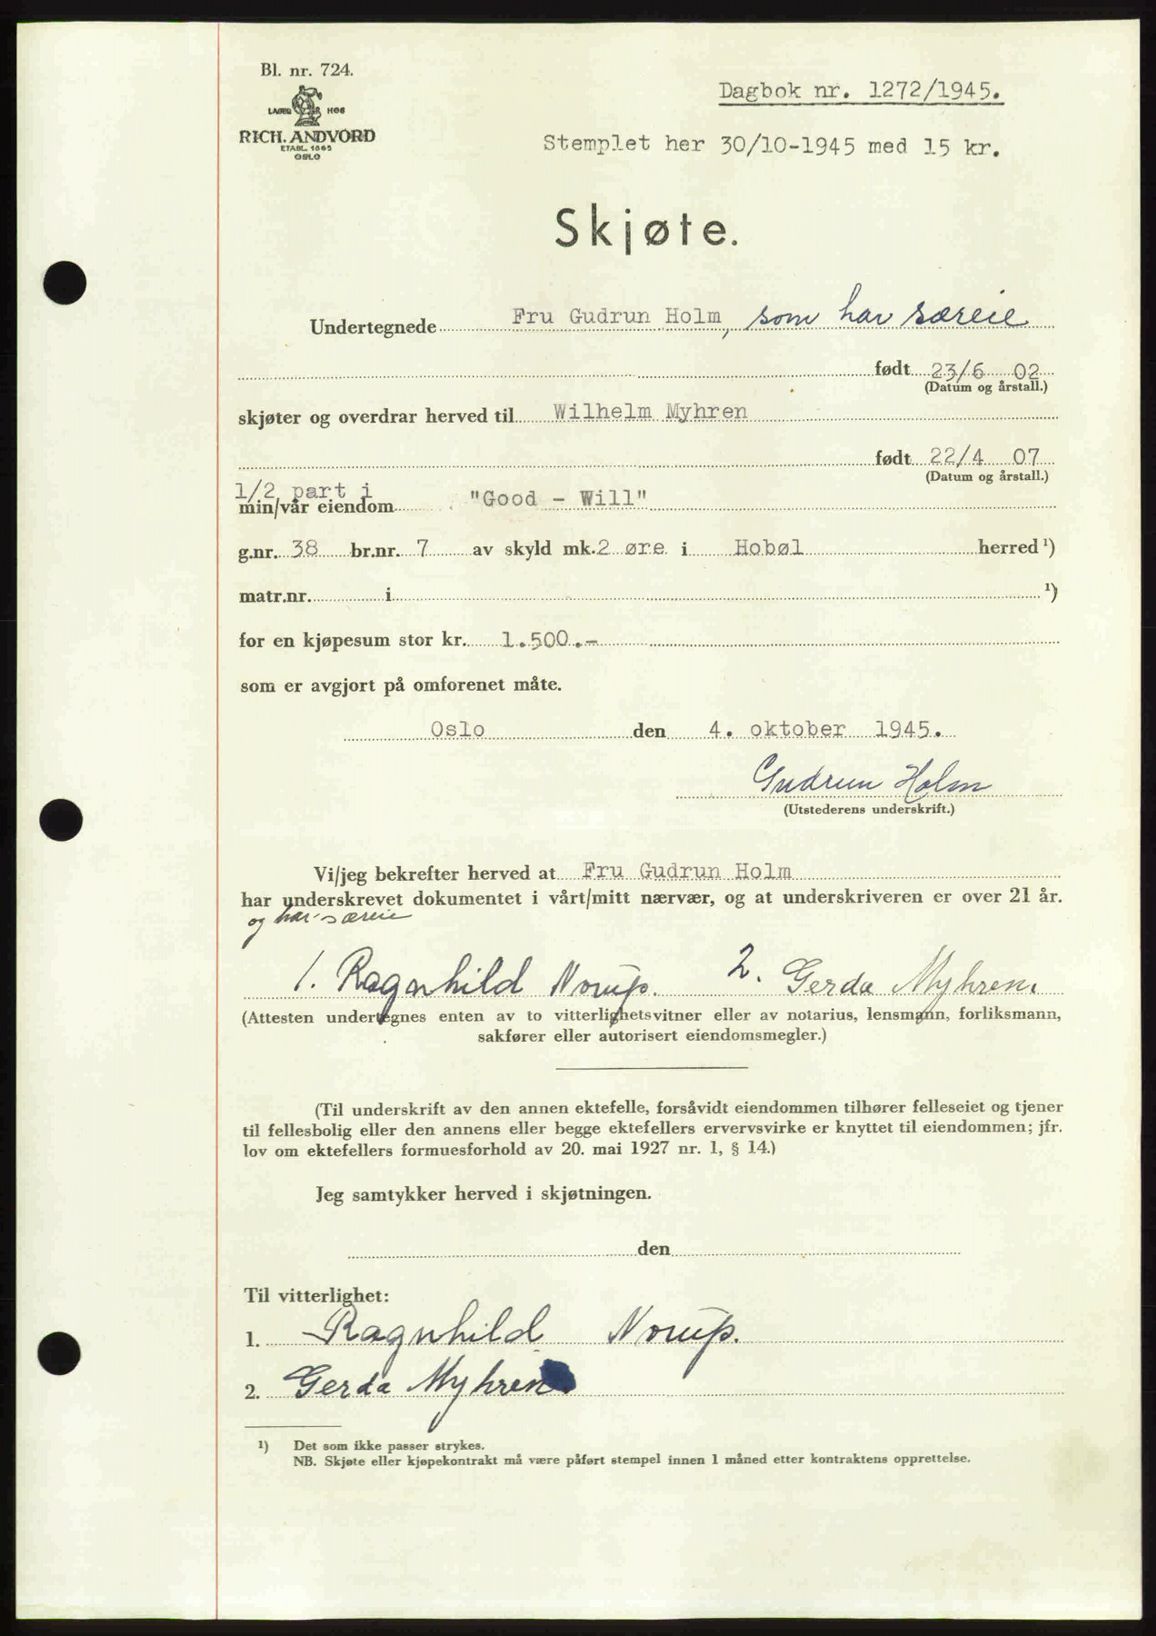 Bl. nr. 724.
LAGER HOS
RICH. ANDVORD
ETABL. 1865
OSLO
Dagbok nr. 1272/1945.
Stemplet her 30/10-1945 med 15 kr.
Skjøte.
Undertegnede Fru Gudrun Holm, som har særeie
født 23/6 02
(Datum og årstall.)
skjøter og overdrar herved til Wilhelm Myhren
født 22/4 07
(Datum og årstall.)
1/2 part i
min/vår eiendom "Good - Will"
g.nr. 38 br.nr. 7 av skyld mk. 2 øre i Hobøl herred ¹)
matr.nr. i ¹)
for en kjøpesum stor kr. 1.500.-
som er avgjort på omforenet måte.
Oslo den 4. oktober 1945.
Gudrun Holm
(Utstederens underskrift.)
Vi/jeg bekrefter herved at Fru Gudrun Holm
har underskrevet dokumentet i vårt/mitt nærvær, og at underskriveren er over 21 år.
og har særeie
1. Ragnhild Norup. 2. Gerda Myhren.
(Attesten undertegnes enten av to vitterlighetsvitner eller av notarius, lensmann, forliksmann,
sakfører eller autorisert eiendomsmegler.)
(Til underskrift av den annen ektefelle, forsåvidt eiendommen tilhører felleseiet og tjener
til fellesbolig eller den annens eller begge ektefellers ervervsvirke er knyttet til eiendommen; jfr.
lov om ektefellers formuesforhold av 20. mai 1927 nr. 1, § 14.)
Jeg samtykker herved i skjøtningen.
den
Til vitterlighet:
1. Ragnhild Norup.
2. Gerda Myhren
¹) Det som ikke passer strykes.
NB. Skjøte eller kjøpekontrakt må være påført stempel innen 1 måned etter kontraktens opprettelse.